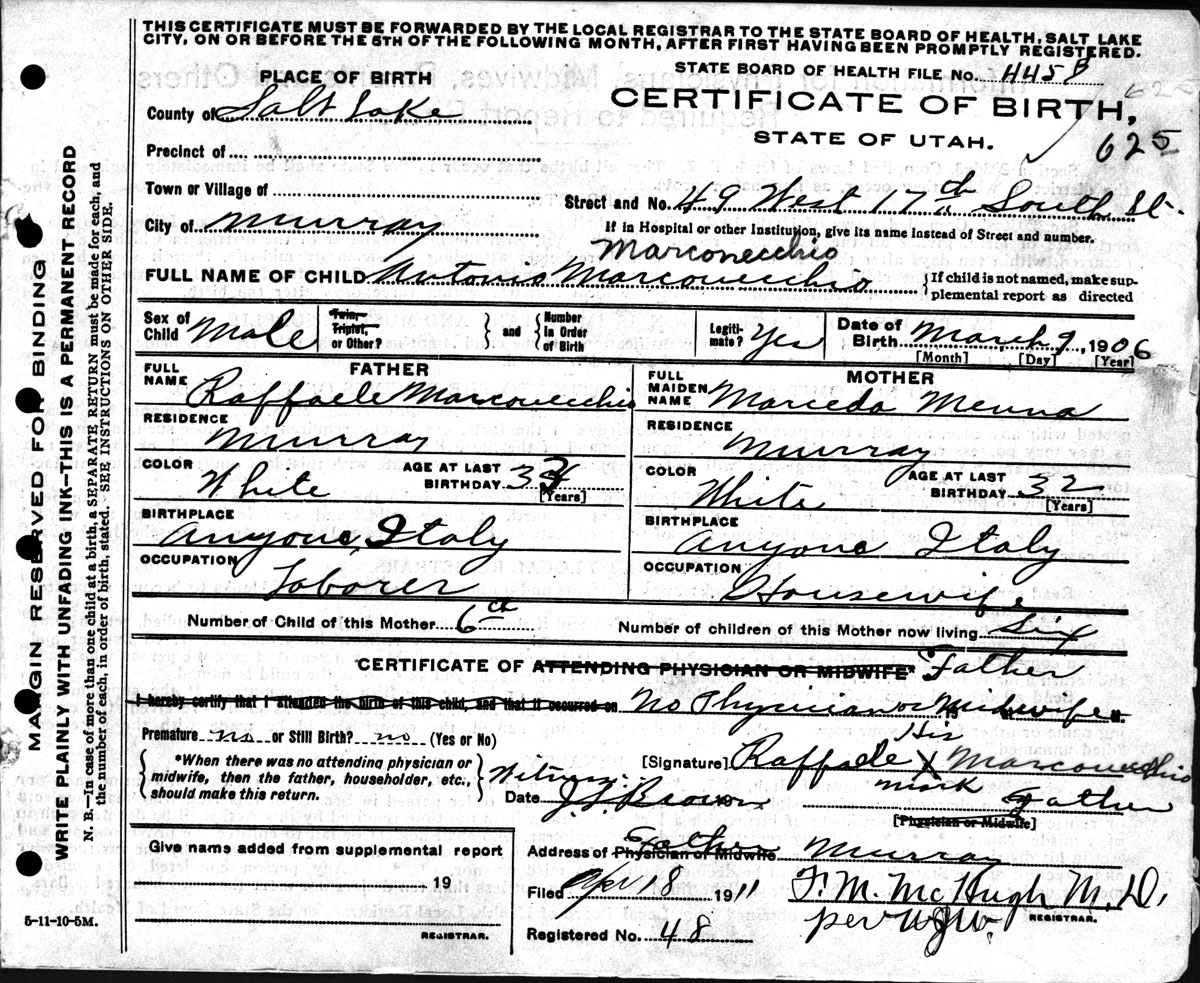 THIS CERTIFICATE MUST BE FORWARDED BY THE LOCAL REGISTRAR TO THE STATE BOARD OF HEALTH, SALT LAKE
CITY, ON OR BEFORE THE 5TH OF THE FOLLOWING MONTH, AFTER FIRST HAVING BEEN PROMPTLY REGISTERED.
PLACE OF BIRTH
STATE BOARD OF HEALTH FILE No. 445 B
County of Salt Lake
CERTIFICATE OF BIRTH,
STATE OF UTAH.
625
Precinct of
Town or Village of
Street and No. 49 West 17th South St.
City of Murray
If in Hospital or other Institution, give its name instead of Street and number.
Marconecchio
FULL NAME OF CHILD Antonio Marcovecchio
{If child is not named, make sup-
plemental report as directed
Sex of Child Male
Twin, Triplet, or Other?
and
Number In Order of Birth
Legiti-mate? Yes
Date of Birth March 9, 1906
[Month] [Day] [Year]
FATHER
FULL NAME Raffaele Marcovecchio
RESIDENCE Murray
COLOR White
AGE AT LAST BIRTHDAY 34
[Years]
BIRTHPLACE Anyone, Italy
OCCUPATION Laborer
MOTHER
FULL MAIDEN NAME Marceda Menna
RESIDENCE Murray
COLOR White
AGE AT LAST BIRTHDAY 32
[Years]
BIRTHPLACE Anyone Italy
OCCUPATION Housewife
Number of Child of this Mother 6th
Number of children of this Mother now living Six
CERTIFICATE OF ATTENDING PHYSICIAN OR MIDWIFE* Father
I hereby certify that I attended the birth of this child, and that it occurred on No Physician or Midwife 19 M.
Premature no or Still Birth? no (Yes or No)
*When there was no attending physician or
midwife, then the father, householder, etc.,
should make this return.
Witness
Date J. L. Brown 19
His
[Signature] Raffaele X Marcovecchio
mark Father
[Physician or Midwife]
Give name added from supplemental report
19
REGISTRAR.
Father
Address of Physician or Midwife Murray
Filed Apr 18 1911
F. M. McHugh M.D.
per WJW.
REGISTRAR.
Registered No. 48
5-11-10-5M.
MARGIN RESERVED FOR BINDING
WRITE PLAINLY WITH UNFADING INK—THIS IS A PERMANENT RECORD
N. B.—In case of more than one child at a birth, a SEPARATE RETURN must be made for each, and
the number of each, in order of birth, stated. SEE INSTRUCTIONS ON OTHER SIDE.